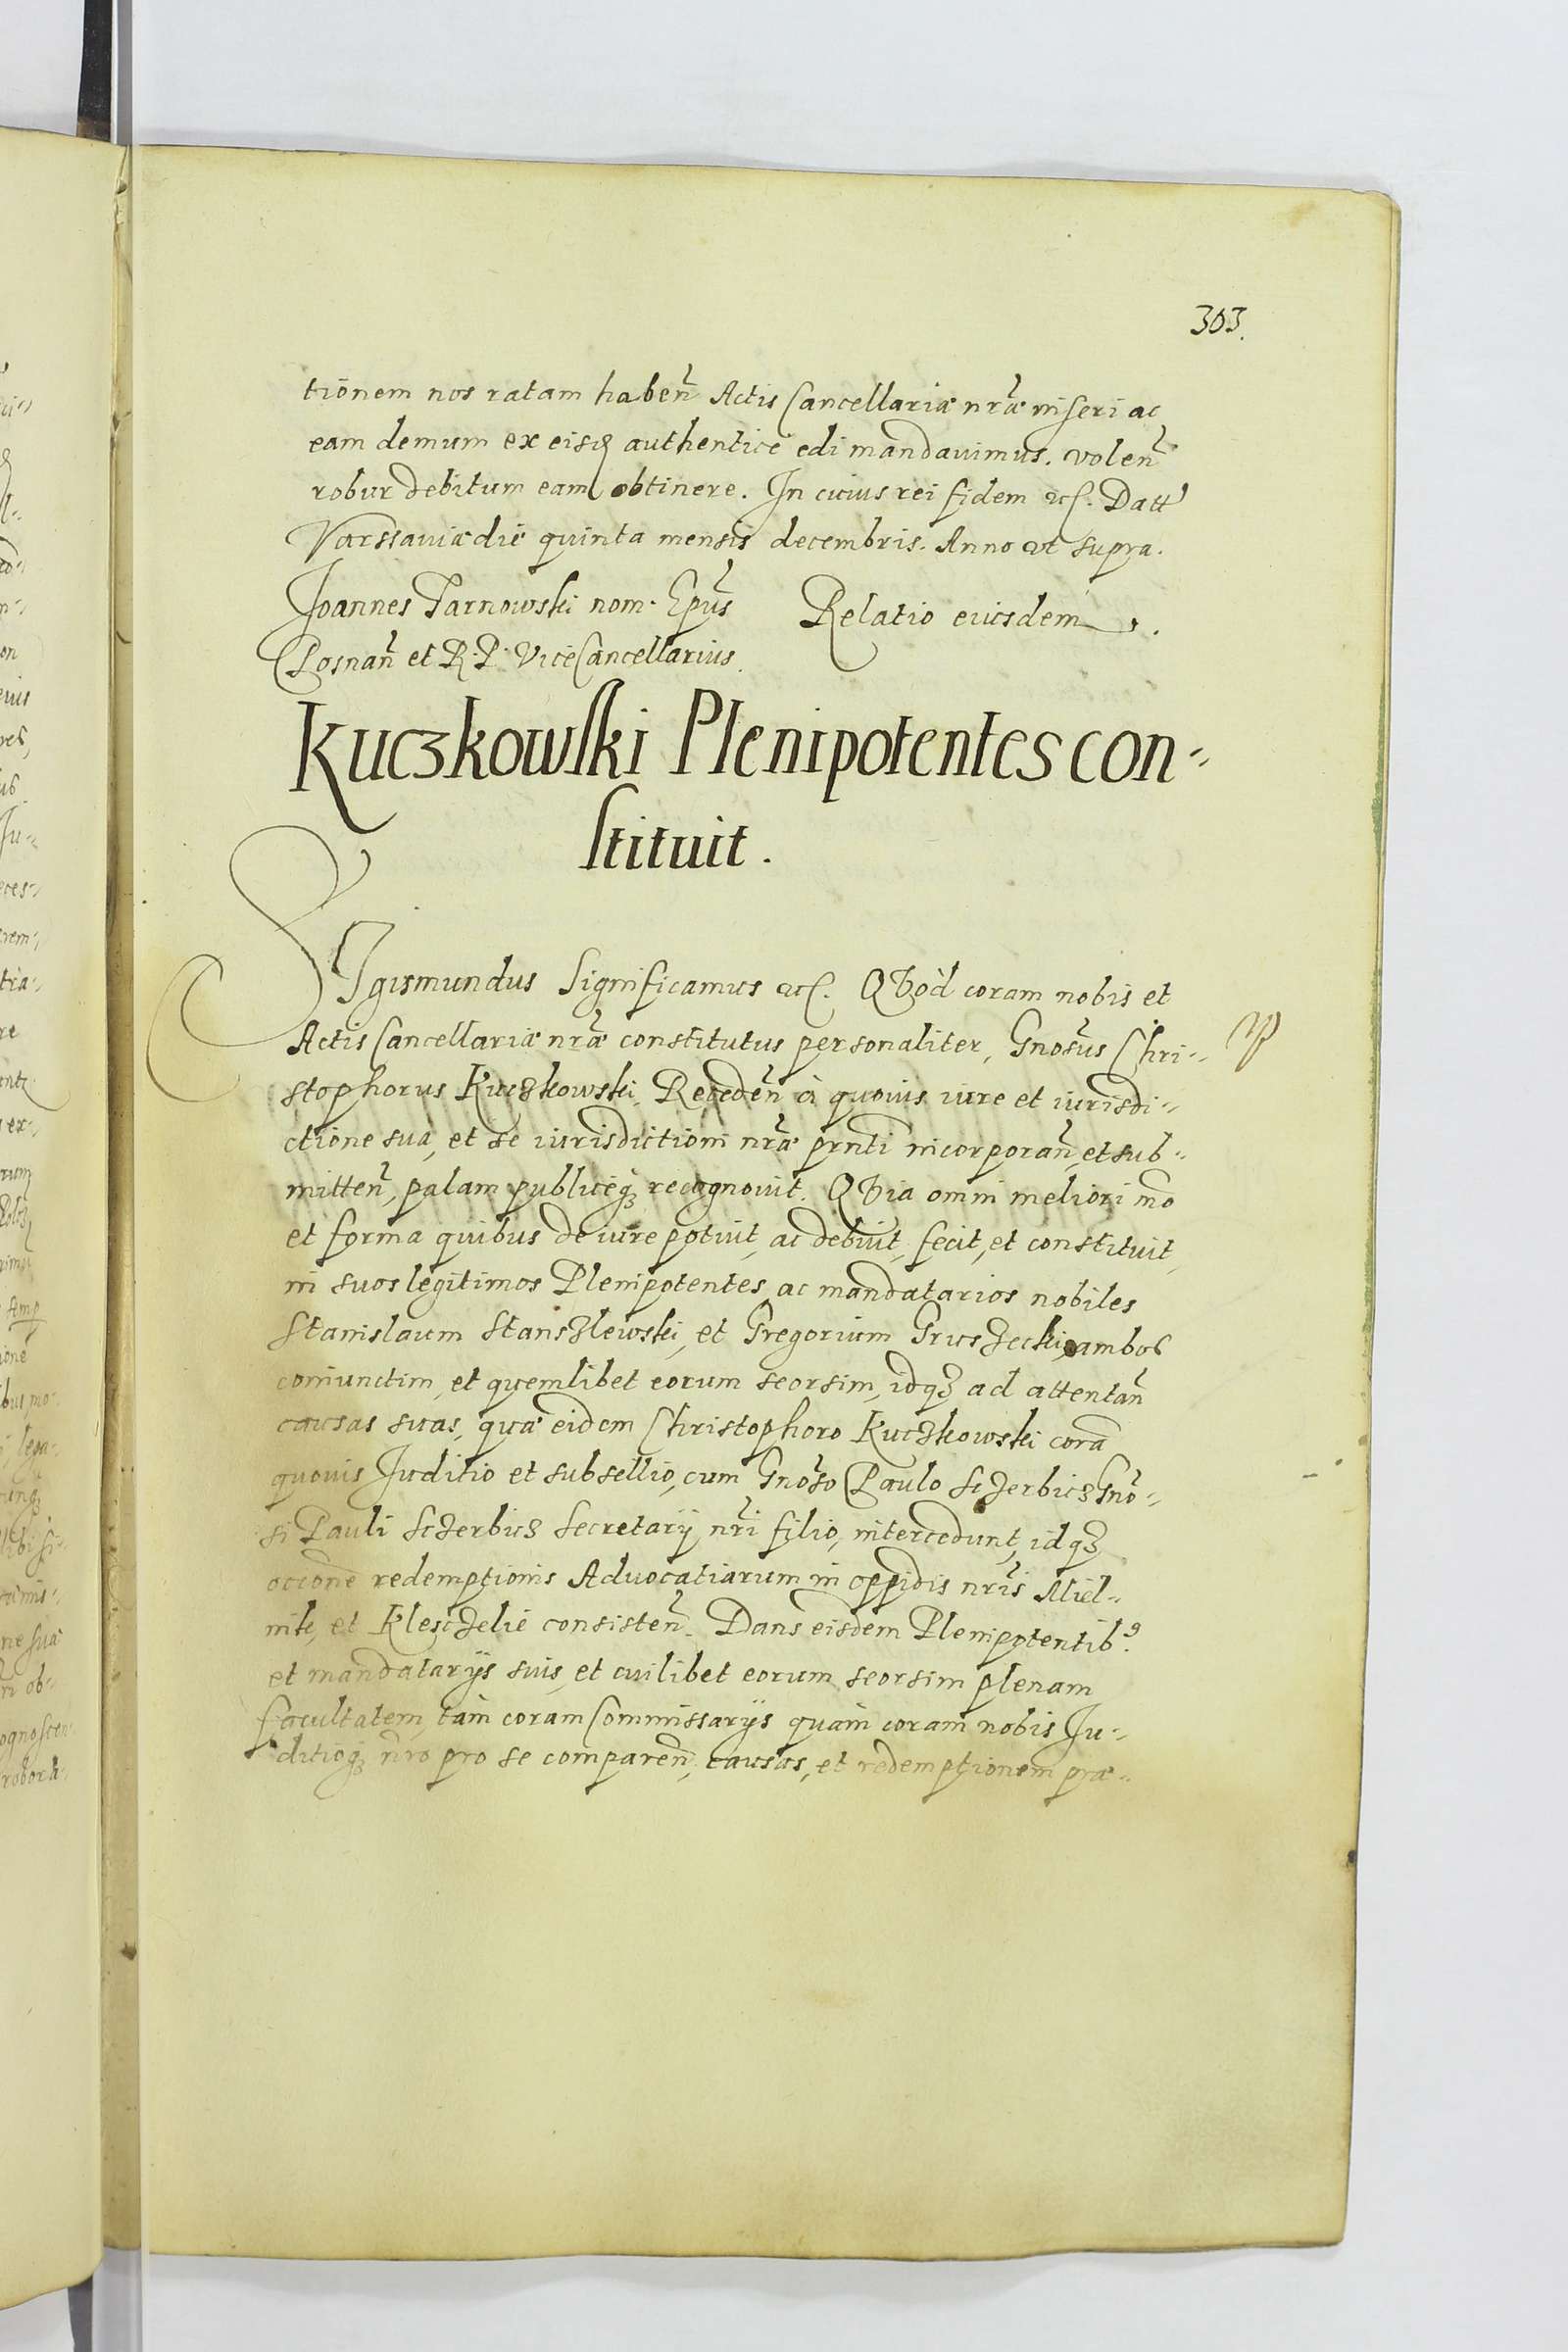 303.
tionem nos ratam haben̄ Actis Cancellariæ nr̄æ inseri ac
eam demum ex eisd authentice edi mandavimus. volen̄
robur debitum eam obtinere. In cuius rei fidem etc. Datt
Varssaviæ die quinta mensis decembris. Anno ut supra.
Joannes Tarnowski nom. Ep̄us Relatio eiusdem.
Posnan̄ et R. P. ViceCancellarius.
Kuczkowski Plenipotentes con-
stituit.
SIgismundus Significamus etc. QVòd coram nobis et
Actis Cancellariæ nr̄æ constitutus personaliter, Gnos̄us Chri-
stophorus Kuczkowski, Receden̄ à quovis iure et iurisdi-
ctione sua, et se iurisdictioni nr̄æ prn̄ti incorporan̄, et sub-
mitten̄, palam publiceq3 recognovit. QVia omni meliori mō
et forma quibus de iure potuit, ac debuit, fecit, et constituit,
in suos legitimos Plenipotentes, ac mandatarios nobiles
Stanislaum Stanszlewski, et Gregorium Gruszecki, ambos
coniunctim, et quemlibet eorum seorsim, idq3 ad attentan̄
causas suas, quæ eidem Christophoro Kuczkowski corā
quovis Juditio et subsellio, cum Gnoso Paulo Sczerbicz Gnō-
si Pauli Sczerbicz Secretarij nr̄i filio, intercedunt, idq3
occone redemptionis Advocatiarum in oppidis nr̄is Miel-
nik, et Klesczelie consisten̄. Dans eisdem Plenipotentib9.
et mandatarijs suis, et cuilibet eorum seorsim plenam
facultatem, tàm coram Commissarijs quàm coram nobis Ju-
ditioq3 nr̄o pro se comparen̄, causas, et redemptionem præ-